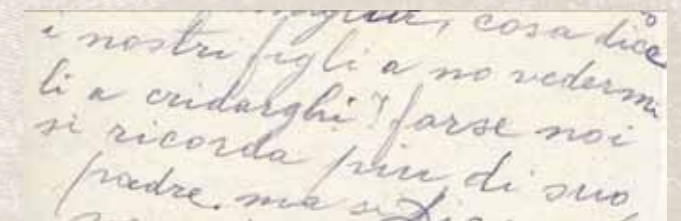 cosa dice
i nostri figli a no vedermi
li a cridarghi? forse noi
si ricorda piu di suo
padre. ma se